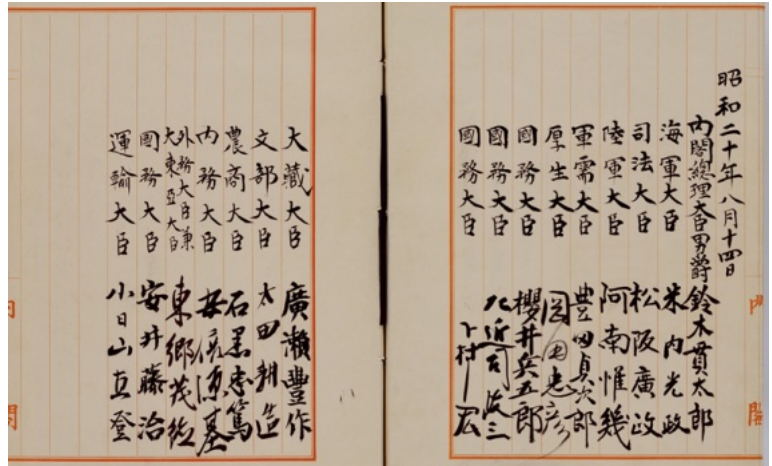 昭和二十年八月十四日
内閣總理大臣男爵 鈴木貫太郎
海軍大臣 米内光政
司法大臣 松阪廣政
陸軍大臣 阿南惟幾
軍需大臣 豊田貞次郎
厚生大臣 岡田忠彦
國務大臣 櫻井兵五郎
國務大臣 左近司政三
國務大臣 下村宏
大藏大臣 廣瀬豐作
文部大臣 太田耕造
農商大臣 石黒忠篤
内務大臣 安倍源基
外務大臣兼
大東亞大臣 東郷茂徳
國務大臣 安井藤治
運輸大臣 小日山直登